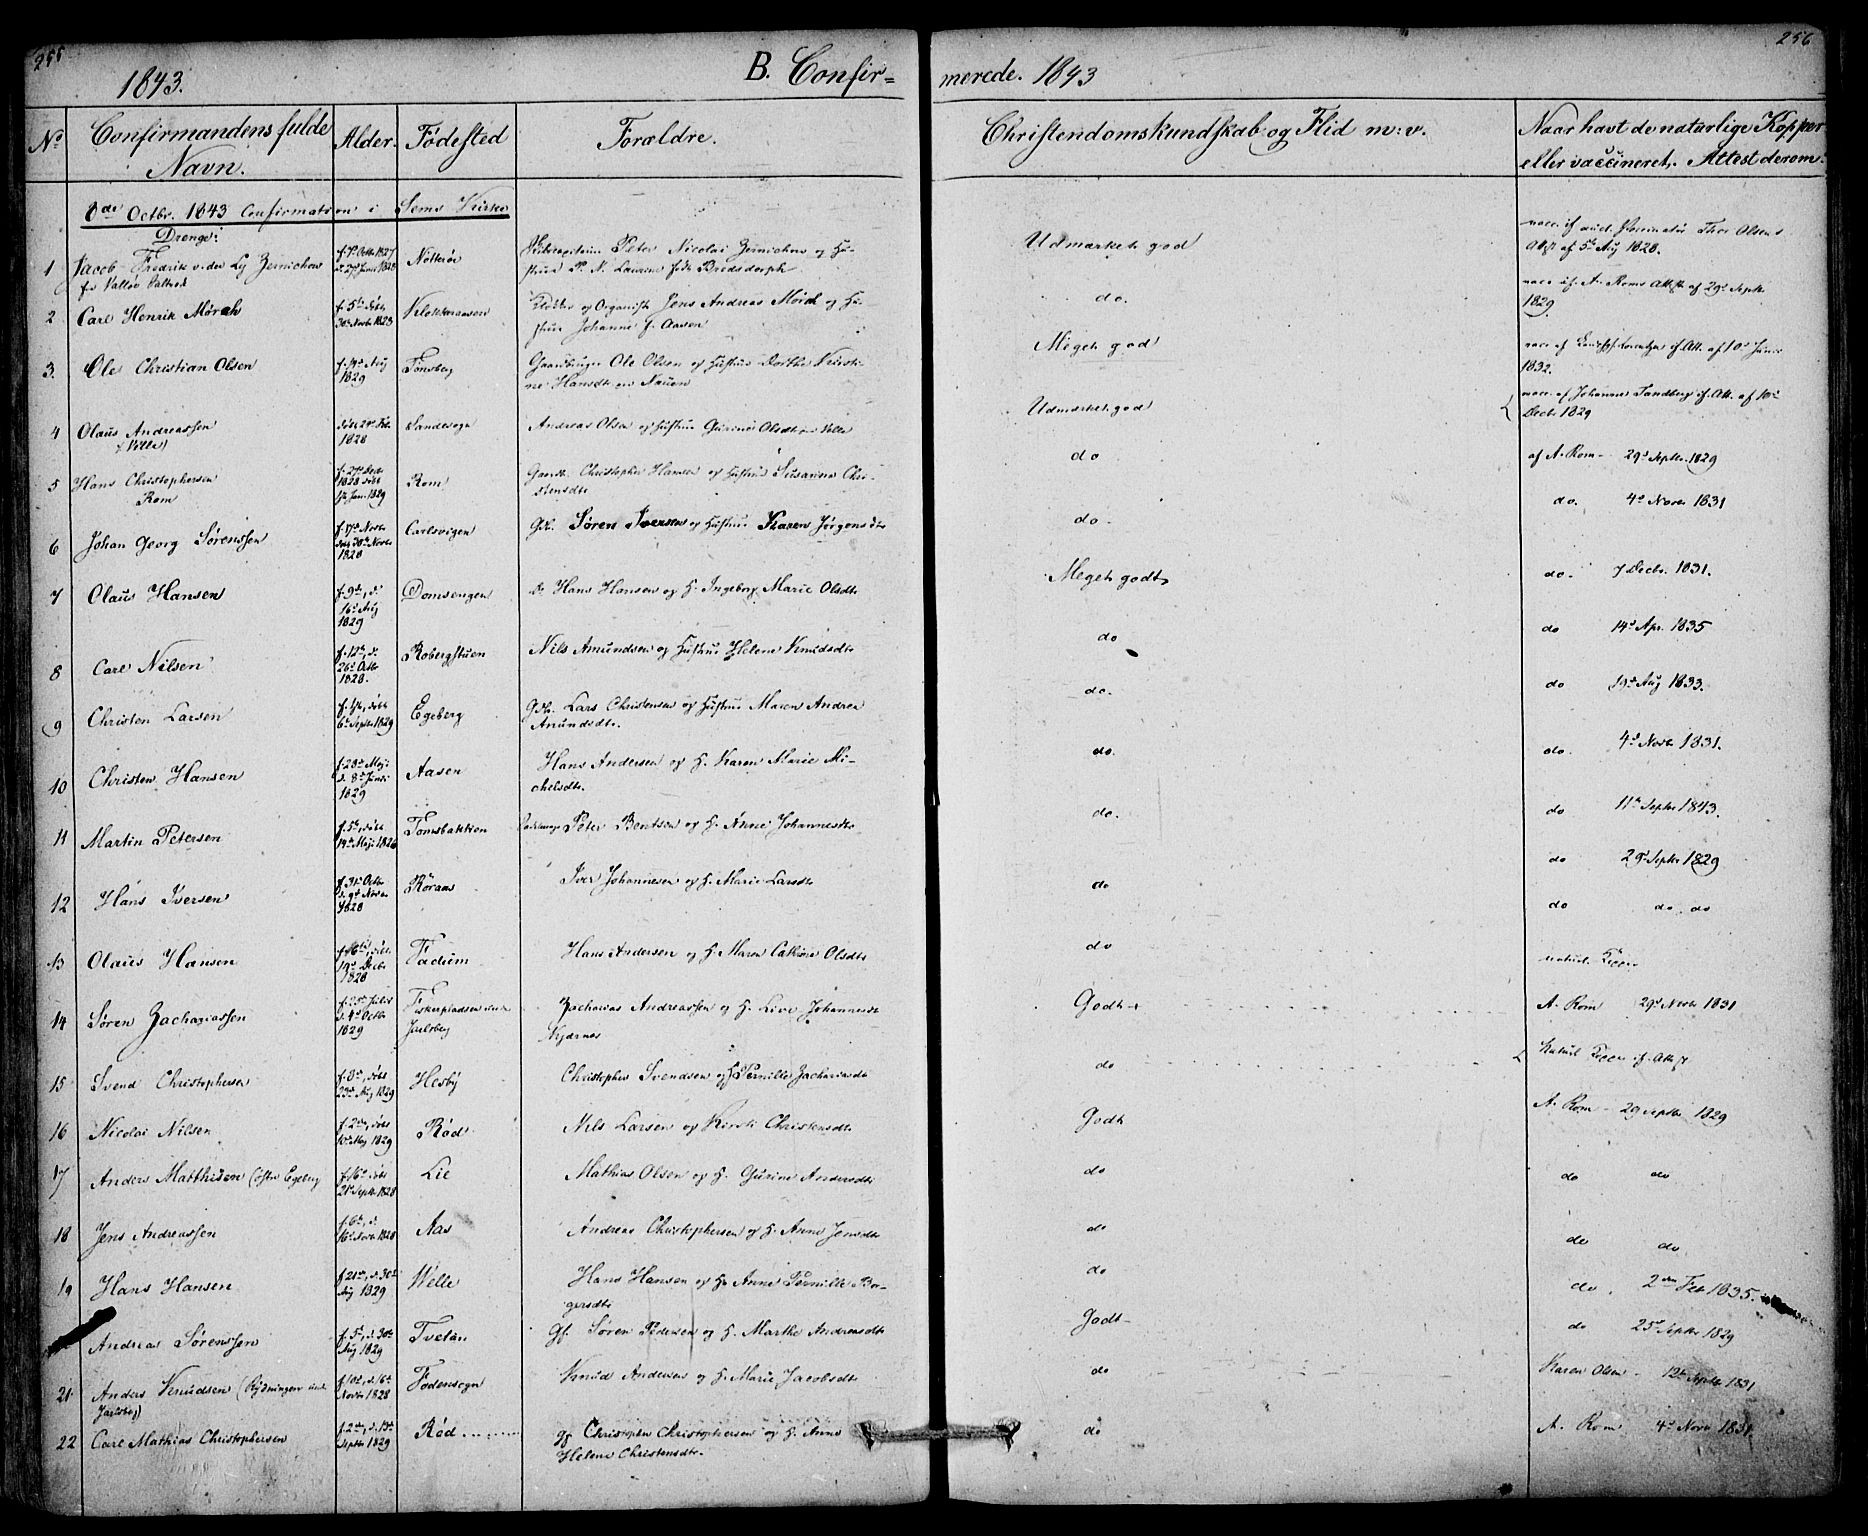 255
1843.
B. Confir=
merede. 1843
256
No
Confirmandens fulde Navn.
Alder.
Fødested
Forældre.
Christendomskundskab og Flid m: v.
Naar havt de naturlige Kopper
eller vaccineret. Attest derom.
8de Octbr. 1843 Confirmation i Sems Kirke
Drenge:
1 Jacob Fredrik v. der Ly
Nøtterøe
Peter Nicolai og Hu-
strue P. N. Laurine
Udmærket god
Attst af 5te Aug 1828.
2 Carl Henrik Mørch
f. 5te døbt
30te Novbr 1828
og Organist Jens Andreas Mørch og Hu-
strue Johanne f. Aasen
do.
vacc. if. A. Roms Attst af 29d Septbr
1829
3. Ole Christian Olsen
f. 14de Aug
1829
Tønsberg
Ole Olsen og Hustrue Dorthe Kirsti-
ne Hansdtr
Meget god
if. Att. af 10de
1832.
4 Olaus Andreassen
(Velle)
1828
Sandesogn
Andreas Olsen og Hustrue Gurine Olsdtr Velle
Udmærket god
vacc. af Johannes Sandberg if. Att. af 10de
Decbr 1829
5 Hans Christophersen
Rom
f. 27de Decbr
1828 døbt
Jan. 1829
Rom
Gaardb. Christopher Hansen og Hustrue Susanna Chri-
stensdtr
do
af A. Rom - 29d Septbr 1829
6 Johan Georg Sørenssen
f. 17de Novbr
døbt 30te Novbr
1828
Carlsvigen
Søren Iversen og Hustrue Karen Jørgensdtr
do.
do. 4d Novbr 1831
7 Olaus Hansen
f. 9de, d.
16d Aug
1829
Domsengen
Hans Hansen og H. Ingeborg Marie Olsdtr
Meget godt
do. 7 Decbr. 1831.
8 Carl Nilsen
f. 12te, d.
26d Octbr
1828.
Robergstuen
Nils Amundsen og Hustrue Helene Knudsdtr
do
do 14d Apr. 1835
9 Christen Larsen
6te Septbr 1829
Egeberg
Lars Christensen og Hustrue Maren Andrea
Anundsdtr.
do.
do 19d Aug 1833.
10 Christen Hansen
f. 28de Maji
d. 8d Juni
1829
Aasen
Hans Andersen og H. Karen Marie Mi-
chelsdtr.
do.
do. 4d Novbr 1831.
11 Martin Petersen
f. 5te, døbt
14de Maji 1828
Tomsbakken
Peter Bentsen og H. Anne Johannesdtr
do.
do 11te Septbr 1843.
12 Hans Iversen
f. 31d Octbr
d. 9d Novbr
1828
Røraas
Iver Johannesen og H. Marie Larsdtr
do
do 29d Septbr 1829
13 Olaus Hansen
f. 16de, døbt
19d Decbr
1828
Fadum
Hans Andersen og H. Maren Cathrine Olsdtr
do
do do do
naturl. Kopper
14 Søren Zachariassen
f. 25de Julii
d. 4d Octbr
1829
Fiskerpladsen under
Jarlsberg
Zacharias Andreassen og H. Live Johannesdtr
Godt
A. Rom 29d Novbr 1831
15 Svend Christophersen
f. 8de, døbt
23de Aug 1829
Hesby
Christopher Svendsen og H. Pernille Zachariasdtr
do
Naturl Kopper if. Attst
16 Nicolai Nilsen
f. 2den, døbt
1829
Rød
Nils Larsen og Kirsti Christensdtr
Godt
A. Rom - 29 Septbr 1829
17 Anders Matthisen (østre Egeberg
f. 16de døbt
21de Septbr 1828
Lie
Mathias Olsen og H. Gurine Andersdtr
do
do do
18 Jens Andreassen
f. 6te, d.
16d Novbr 1828
Aas
Andreas Christophersen og H. Anne Jensdtr
do
do do
19 Hans Hansen
f. 21de, d. 30te
Aug 1829
Welle
Hans Hansen og H. Anne Pernille Bor-
gersdtr
do
do. 2den Feb 1835.
Andreas Sørenssen
f. 5te, d. 30te
Aug 1829
Tvetan
Gf. Søren Pedersen og H. Marthe Andreasdtr
Godt
do 25d Septbr 1829
21 Anders Knudsen (Rydningen under
Jarlsberg)
f. 10de, d. 16de
Novbr 1828
Fødensogn
Knud Andersen og H. Marie Jacobsdtr
do
Karen Olsen - 12te Septbr 1831
22 Carl Mathias Christophersen
f. 2den, d. 13de
Septbr 1829
Rød
gf. Christopher Christophersen og H. Anne
Helene Christensdtr.
do
A. Rom 4d Novbr 1831